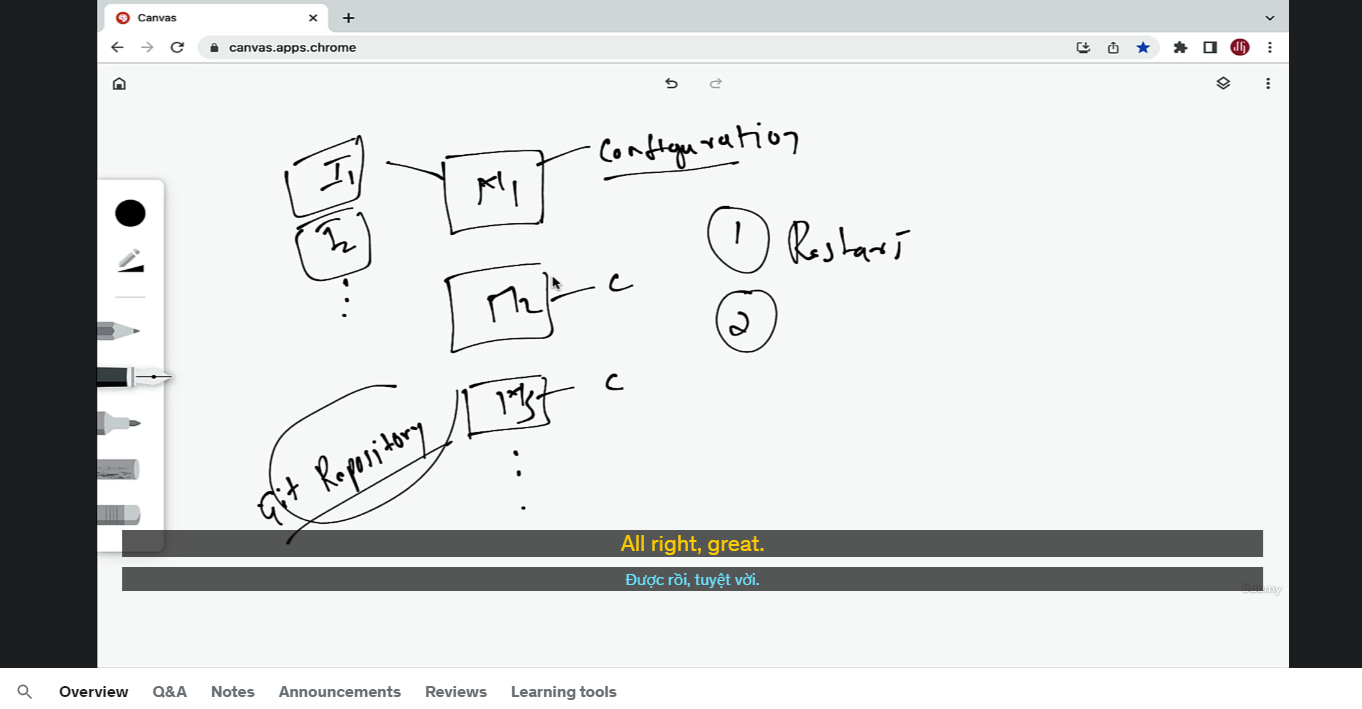 Canvas
canvas.apps.chrome
I1
M1
Configuration
I2
1
Restart
M2
C
2
M3
C
Git Repository
All right, great.
Được rồi, tuyệt vời.
Udemy
Overview Q&A Notes Announcements Reviews Learning tools